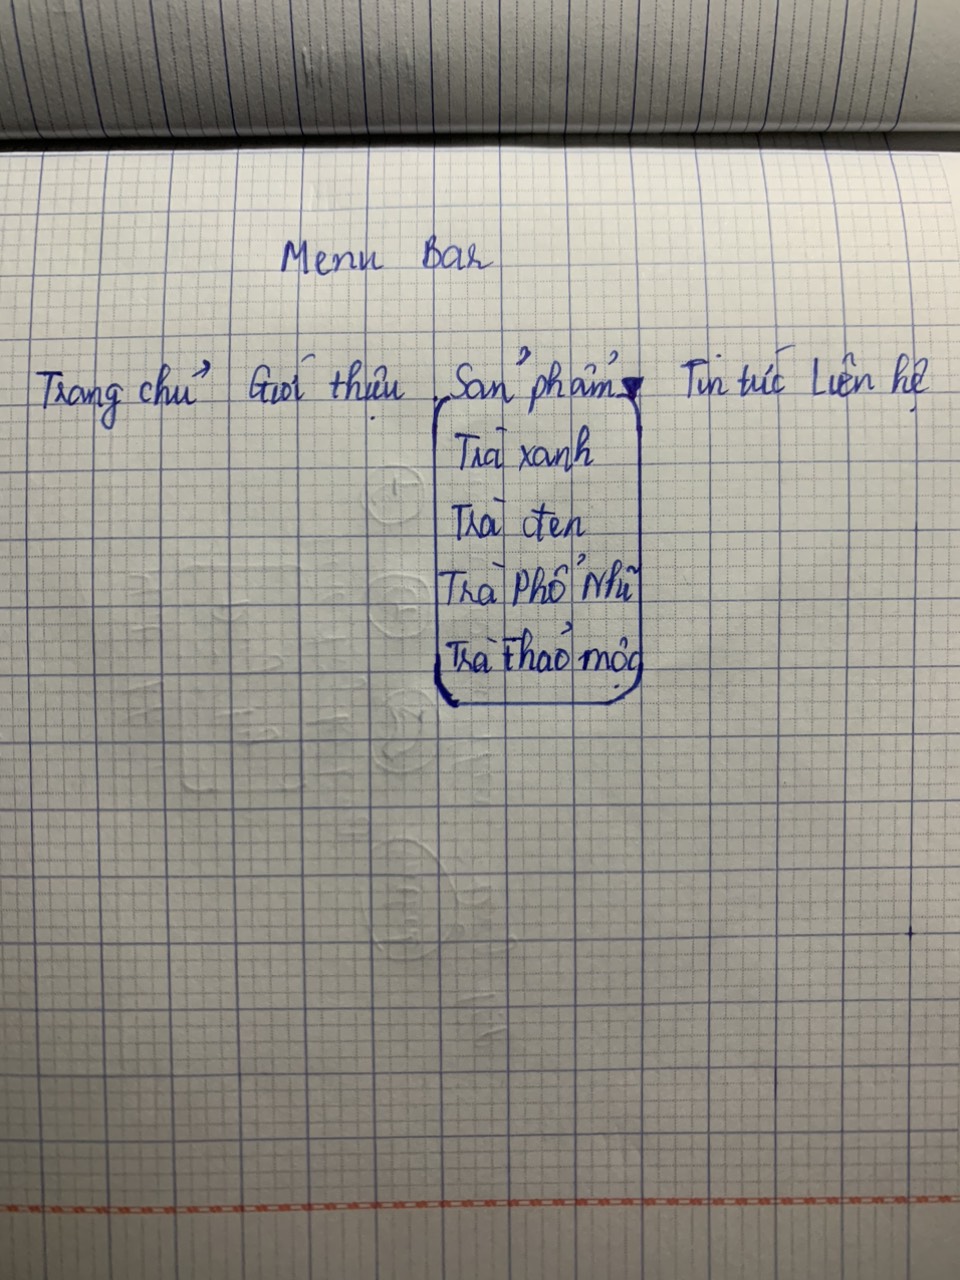 Menu Bar
Trang chủ Giới thiệu Sản phẩm▼ Tin tức Liên hệ
Trà xanh
Trà đen
Trà Phổ Nhĩ
Trà thảo mộc